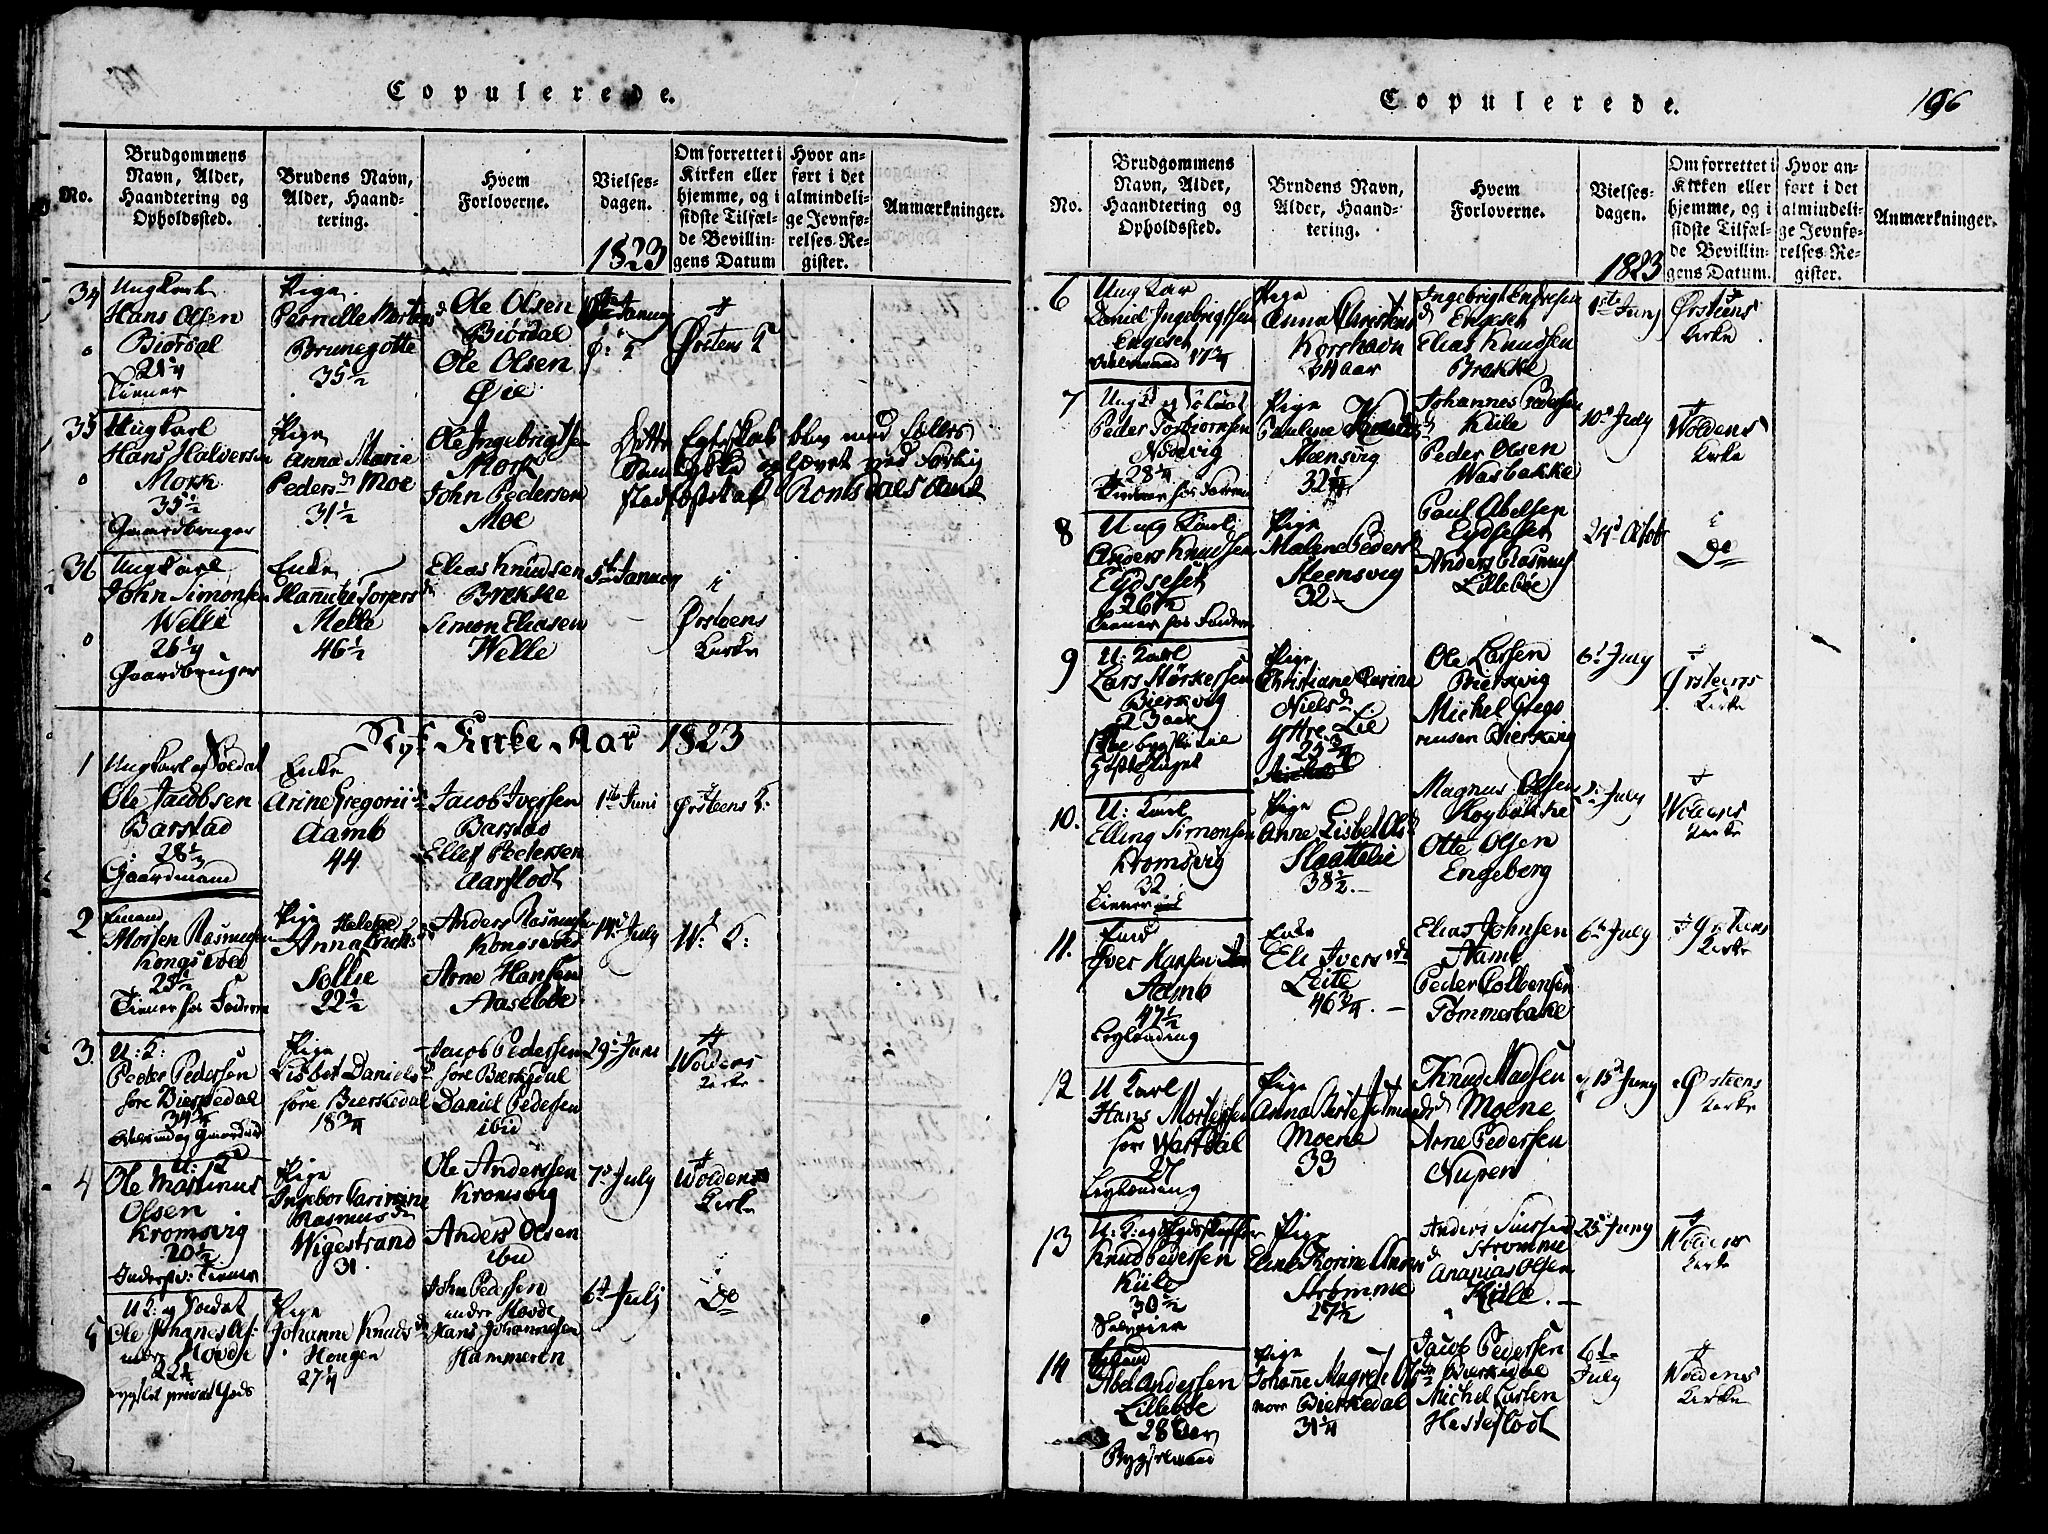 Copulerede.
No.
Brudgommens
Navn, Alder,
Haandtering og
Opholdssted.
Brudens Navn,
Alder, Haand-
tering.
Hvem
Forloverne.
Vielses-
dagen.
1823
Om forrettet i
Kirken eller
hjemme, og i
sidste Tilfæl-
de Bevillin-
gens Datum
Hvor an-
ført i det
almindeli-
ge Jevnfø-
relses-Re-
gister.
Anmærkninger.
34
Ungkarl
Hans Olsen
Biørdal
Tiener
Pige
Pernille Mortens
Brunegotte
35½
Ole Olsen
Biørdal
Ole Olsen
Øie
Ørstens K
35
Ungkarl
Hans Halversen
Mork
35½
Gaardbruger
Pige
Anna Maria
Peders Moe
31½
Ole Ingebrigtsen
Mork
John Pedersen
Moe
Dette Egteskab blev med
Romsdals Amt
36
Ungkarl
John Simonsen
Welle
26¼
Gaardbruger
Enke
Torgers
Melle
46½
Elias Knudsen
Brekke
Simon Eliasen
Welle
5te Januar
i
Ørsteens
Kirke
Nyt Kirke Aar 1823
1
Ungkarl og Soldat
Ole Jacobsen
Barstad
28½
Gaardmand
Enke
Arine Gregorii
Aamb
44
Jacob Iversen
Barstad
Ellef Pedersen
Aarflodt
1ste Juni
Ørsteens K:
2
Morten Rasmusen
Kongsvold
25½
Tiener hos Faderen
Pige Helene
Anna
Sollie
22½
Anders Rasmusen
Kongsvold
Arne Hansen
Aasebøe
14d July
W: K:
3
U: K:
Peder Pedersen
søre Bierkedal
34¾
Pige
Lisbet Daniels
søre Bierkedal
18¾
Jacob Pedersen
søre Bierkedal
Daniel Pedersen
ibid
29d Juni
Woldens
Kirke
4
U: K
Ole Martinus
Olsen
Kromsvig
20½
Pige
Ingebor Karinine
Rasmusd
Wigestrand
31.
Ole Anderssen
Kromsvig
Anders Olsen
ibid
7d July
Woldens
Kirke
5
U K: og Soldat
Ole Johannes
Hovde
22¼
bygslet privat Gods
Pige
Johanne Knuds
Hougen
27¼
John Pedersen
Hovde
Hans Johannesen
Hammeren
6d July
i
Do
Copulerede.
196
No.
Brudgommens
Navn, Alder,
Haandtering og
Opholdssted.
Brudens Navn,
Alder, Haand-
tering.
Hvem
Forloverne.
Vielses-
dagen.
1823
Om forrettet i
Kirken eller
hjemme, og i
sidste Tilfæl-
de Bevillin-
gens Datum.
Hvor an-
ført i det
almindeli-
ge Jevnfø-
relses-Re-
gister.
Anmærkninger.
6
Ung Kar
Daniel Ingebrigtsen
Engeset
Pige
Anna Christens
Korshavn
Ingebrigt Endresen
Engeset
Elias Knudsen
Brekke
1ste Juny
Ørsteens
Kirke
7
Ung K og Soldat
Peder Torbiørnsen
Nødvig
28¼
Tiener hos Faderen
Pige
Pauline
Steensvig
Johannes Pedersen
Kiile
Peder Olsen
Wasbakke
10d July
Woldens
Kirke
8
Ung Karl
Anders Knudsen
Eydseset
26½
Tiener hos Faderen
Pige
Malene Peders
Steensvig
32
Paul Abelsen
Eydseset
Anders Rasmus
Lillebøe
24d
i
Do
9
U: Karl
Lars Størkersen
Bierkvig
23 aar
Pige
Christiane Karine
Niels
yttre Lie
25¾
Ole Larsen
Bierkvig
Michel Grego
riusen Bierkvig
6d July
Ørsteens
Kirke
10.
U: Karl
Elling Simonsen
Kromsvig
32
Tiener
Pige
Anne Lisbet Ols
Slaattelie
38½
Magnus Olsen
Høybakke
Otte Olsen
Engeberg
July
Woldens
Kirke
11.
Iver Hansen
Aamb
47½
Leylænding
Enke
Eli Ivers
Leite
46¾
Elias Johnsen
Aamb
Peder Colbensen
Tømmerbakke
6d July
Kirke
12
U Karl
Hans Mortensen
søre Wartdal
27
Leylænding
Pige
Moene
33
Knud Madsen
Moene
Arne Pedersen
Nupen
15d Juny
Ørsteens
Kirke
13
Knud Pedersen
Kiile
30½
Selveier
Pige
Karine Anders
Strømme
27½
Anders Siursen
Strømme
Ananias Olsen
Kiile.
25d Juny
Woldens
Kirke
14
Abel Andersen
Lillebøe
28 Aar
Bygselmand
Pige
Johanne Magrete Ols
nore Bierkedal
31¼
Jacob Pedersen
Bierkedal
Michel Larsen
Hesteflodt
6te
July
Woldens
Kirke